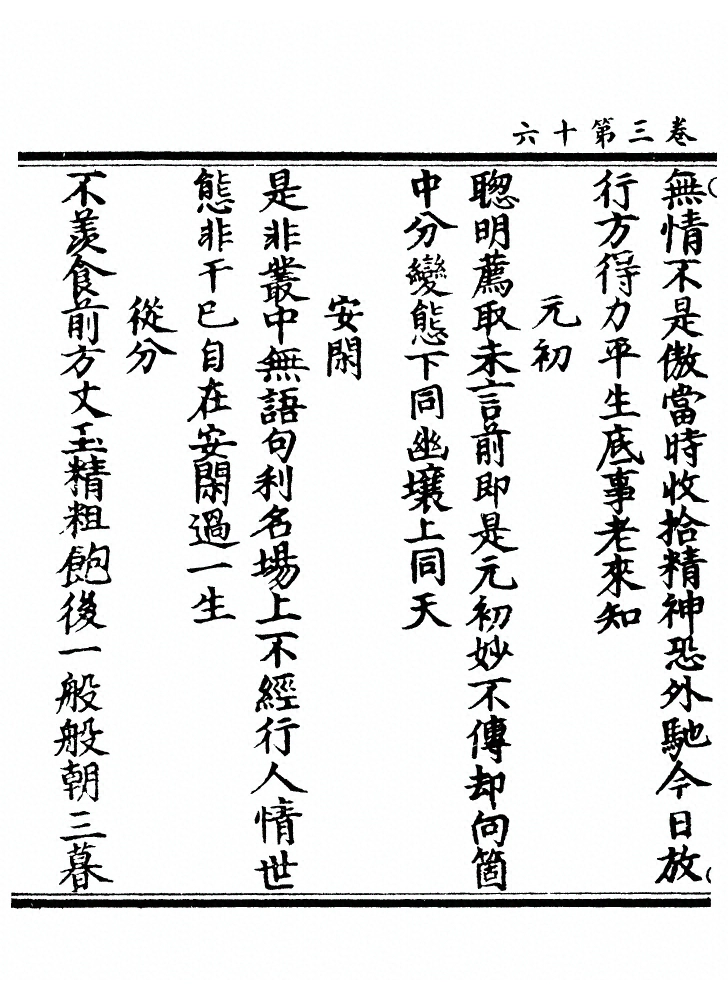 卷三第十六
無情不是傲當時收拾精神恐外馳今日放
行方得力平生底事老來知
元初
聰明薦取未言前即是元初妙不傳却向箇
中分變態下同幽壤上同天
安閑
是非叢中無語句利名場上不經行人情世
態非干已自在安閑過一生
從分
不羨食前方丈玉精粗飽後一般般朝三暮